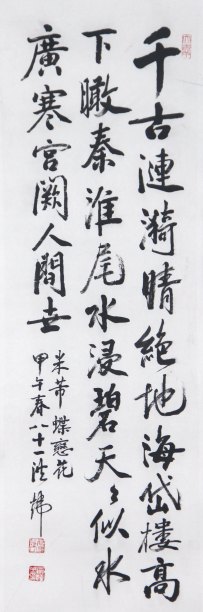 千古漣漪晴絕地海岱樓高
下瞰秦淮尾水浸碧天〻似水
廣寒宮闕人間世
米芾蝶戀花
甲午春八十一